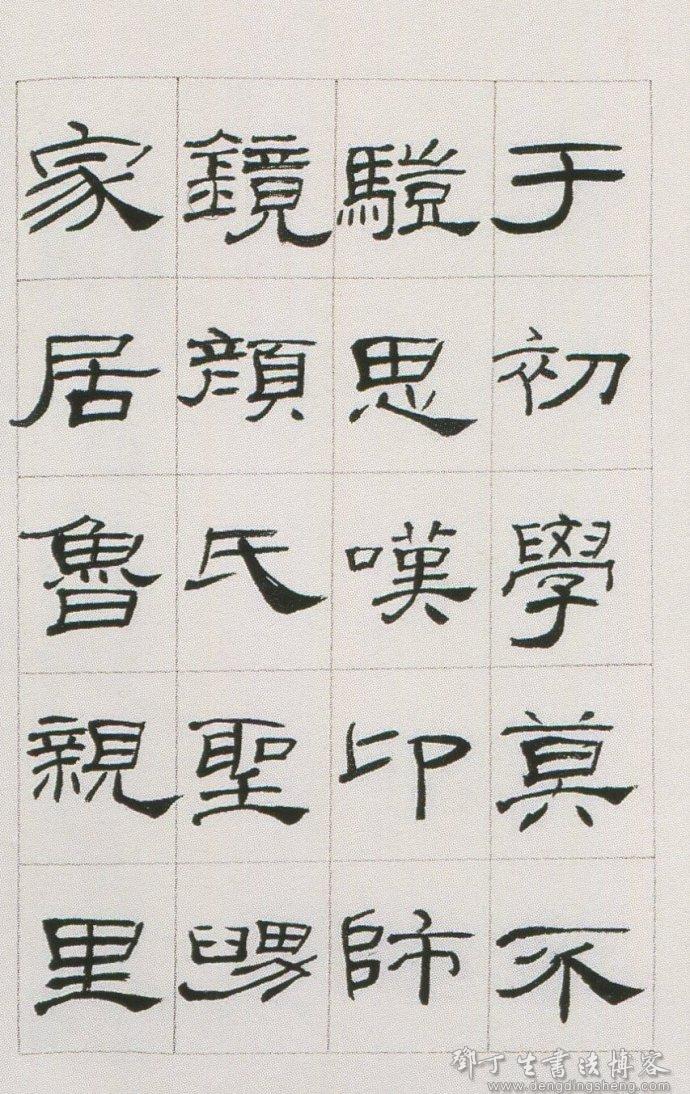 于初學莫不
驥思嘆卬師
鏡顏氏聖舅
家居魯親里
鄧丁生書法博客
www.dengdingsheng.com